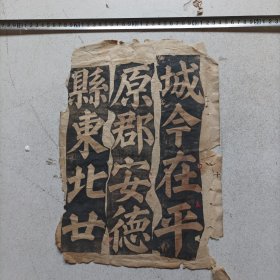 城今在平
原郡安德
縣東北廿